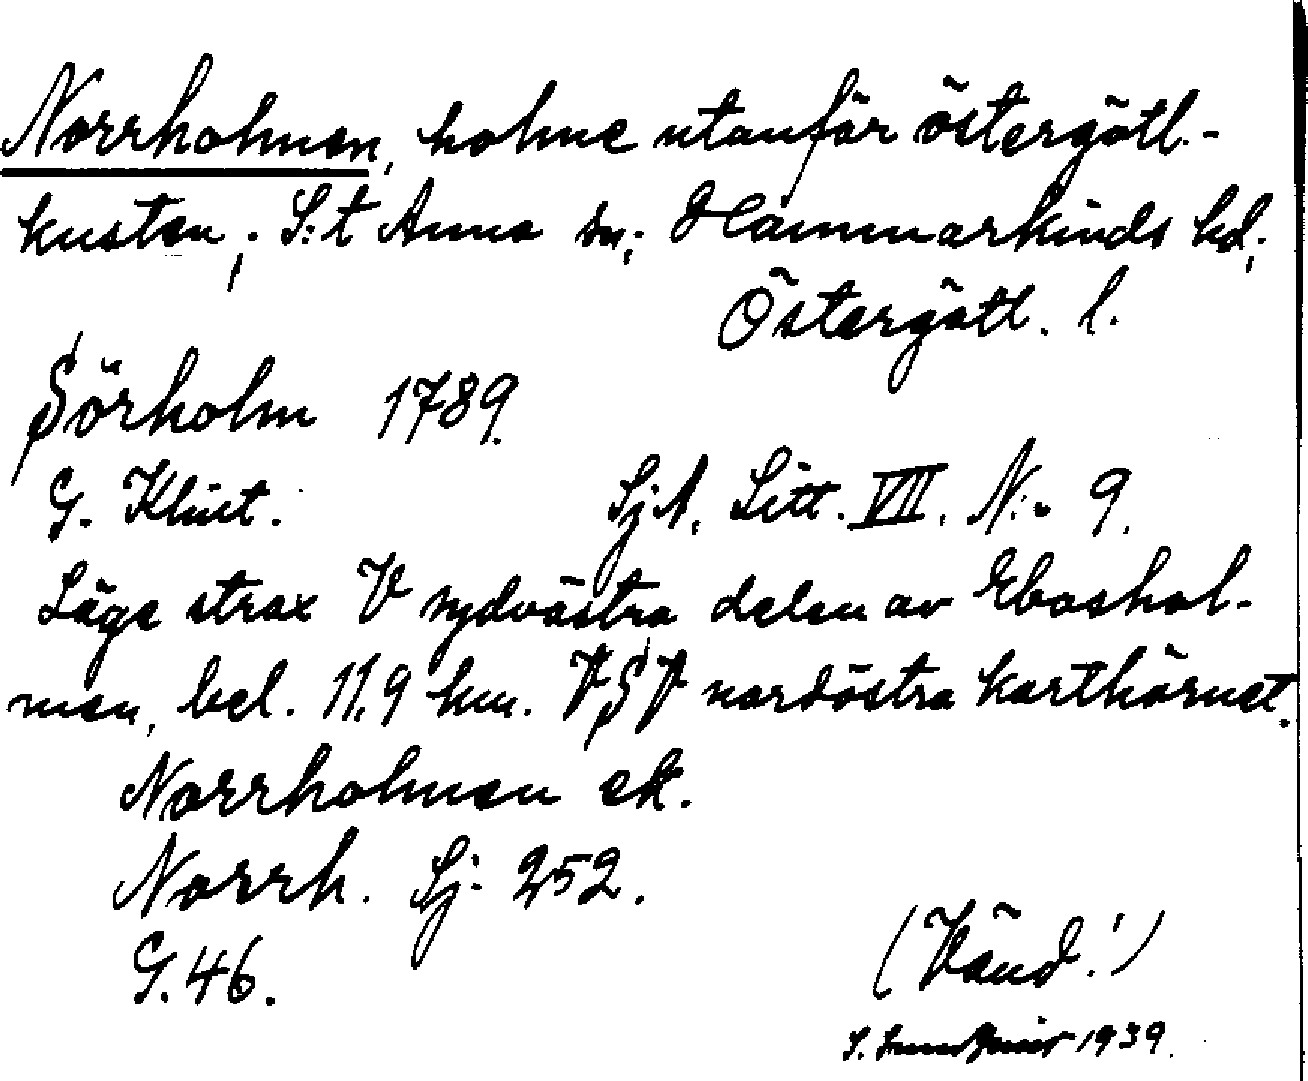 Norrholmen, holme utanför östergötl.-
kusten; S:t Anna sn; Hammarkinds hd;
Östergötl. l.
Sörholm 1789.
G. Klint. SjA, Litt. VII. N:o 9.
Läge strax V sydvästra delen av Eboshol-
men, bel. 11,9 km. VSV nordöstra karthörnet.
Norrholmen ek.
Norrh. Sj: 252.
G. 46.
(Vänd!)
S. 1939.